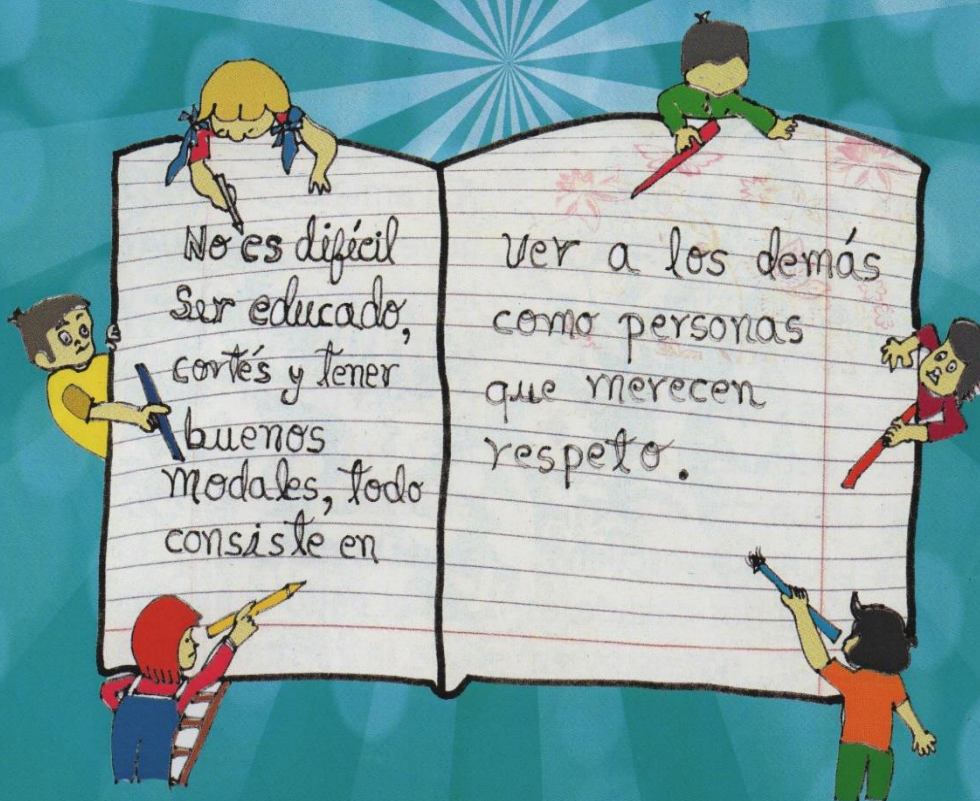 No es difícil
Ser educado,
cortés y tener
buenos
modales, todo
consiste en
Ver a los demás
como personas
que merecen
respeto.